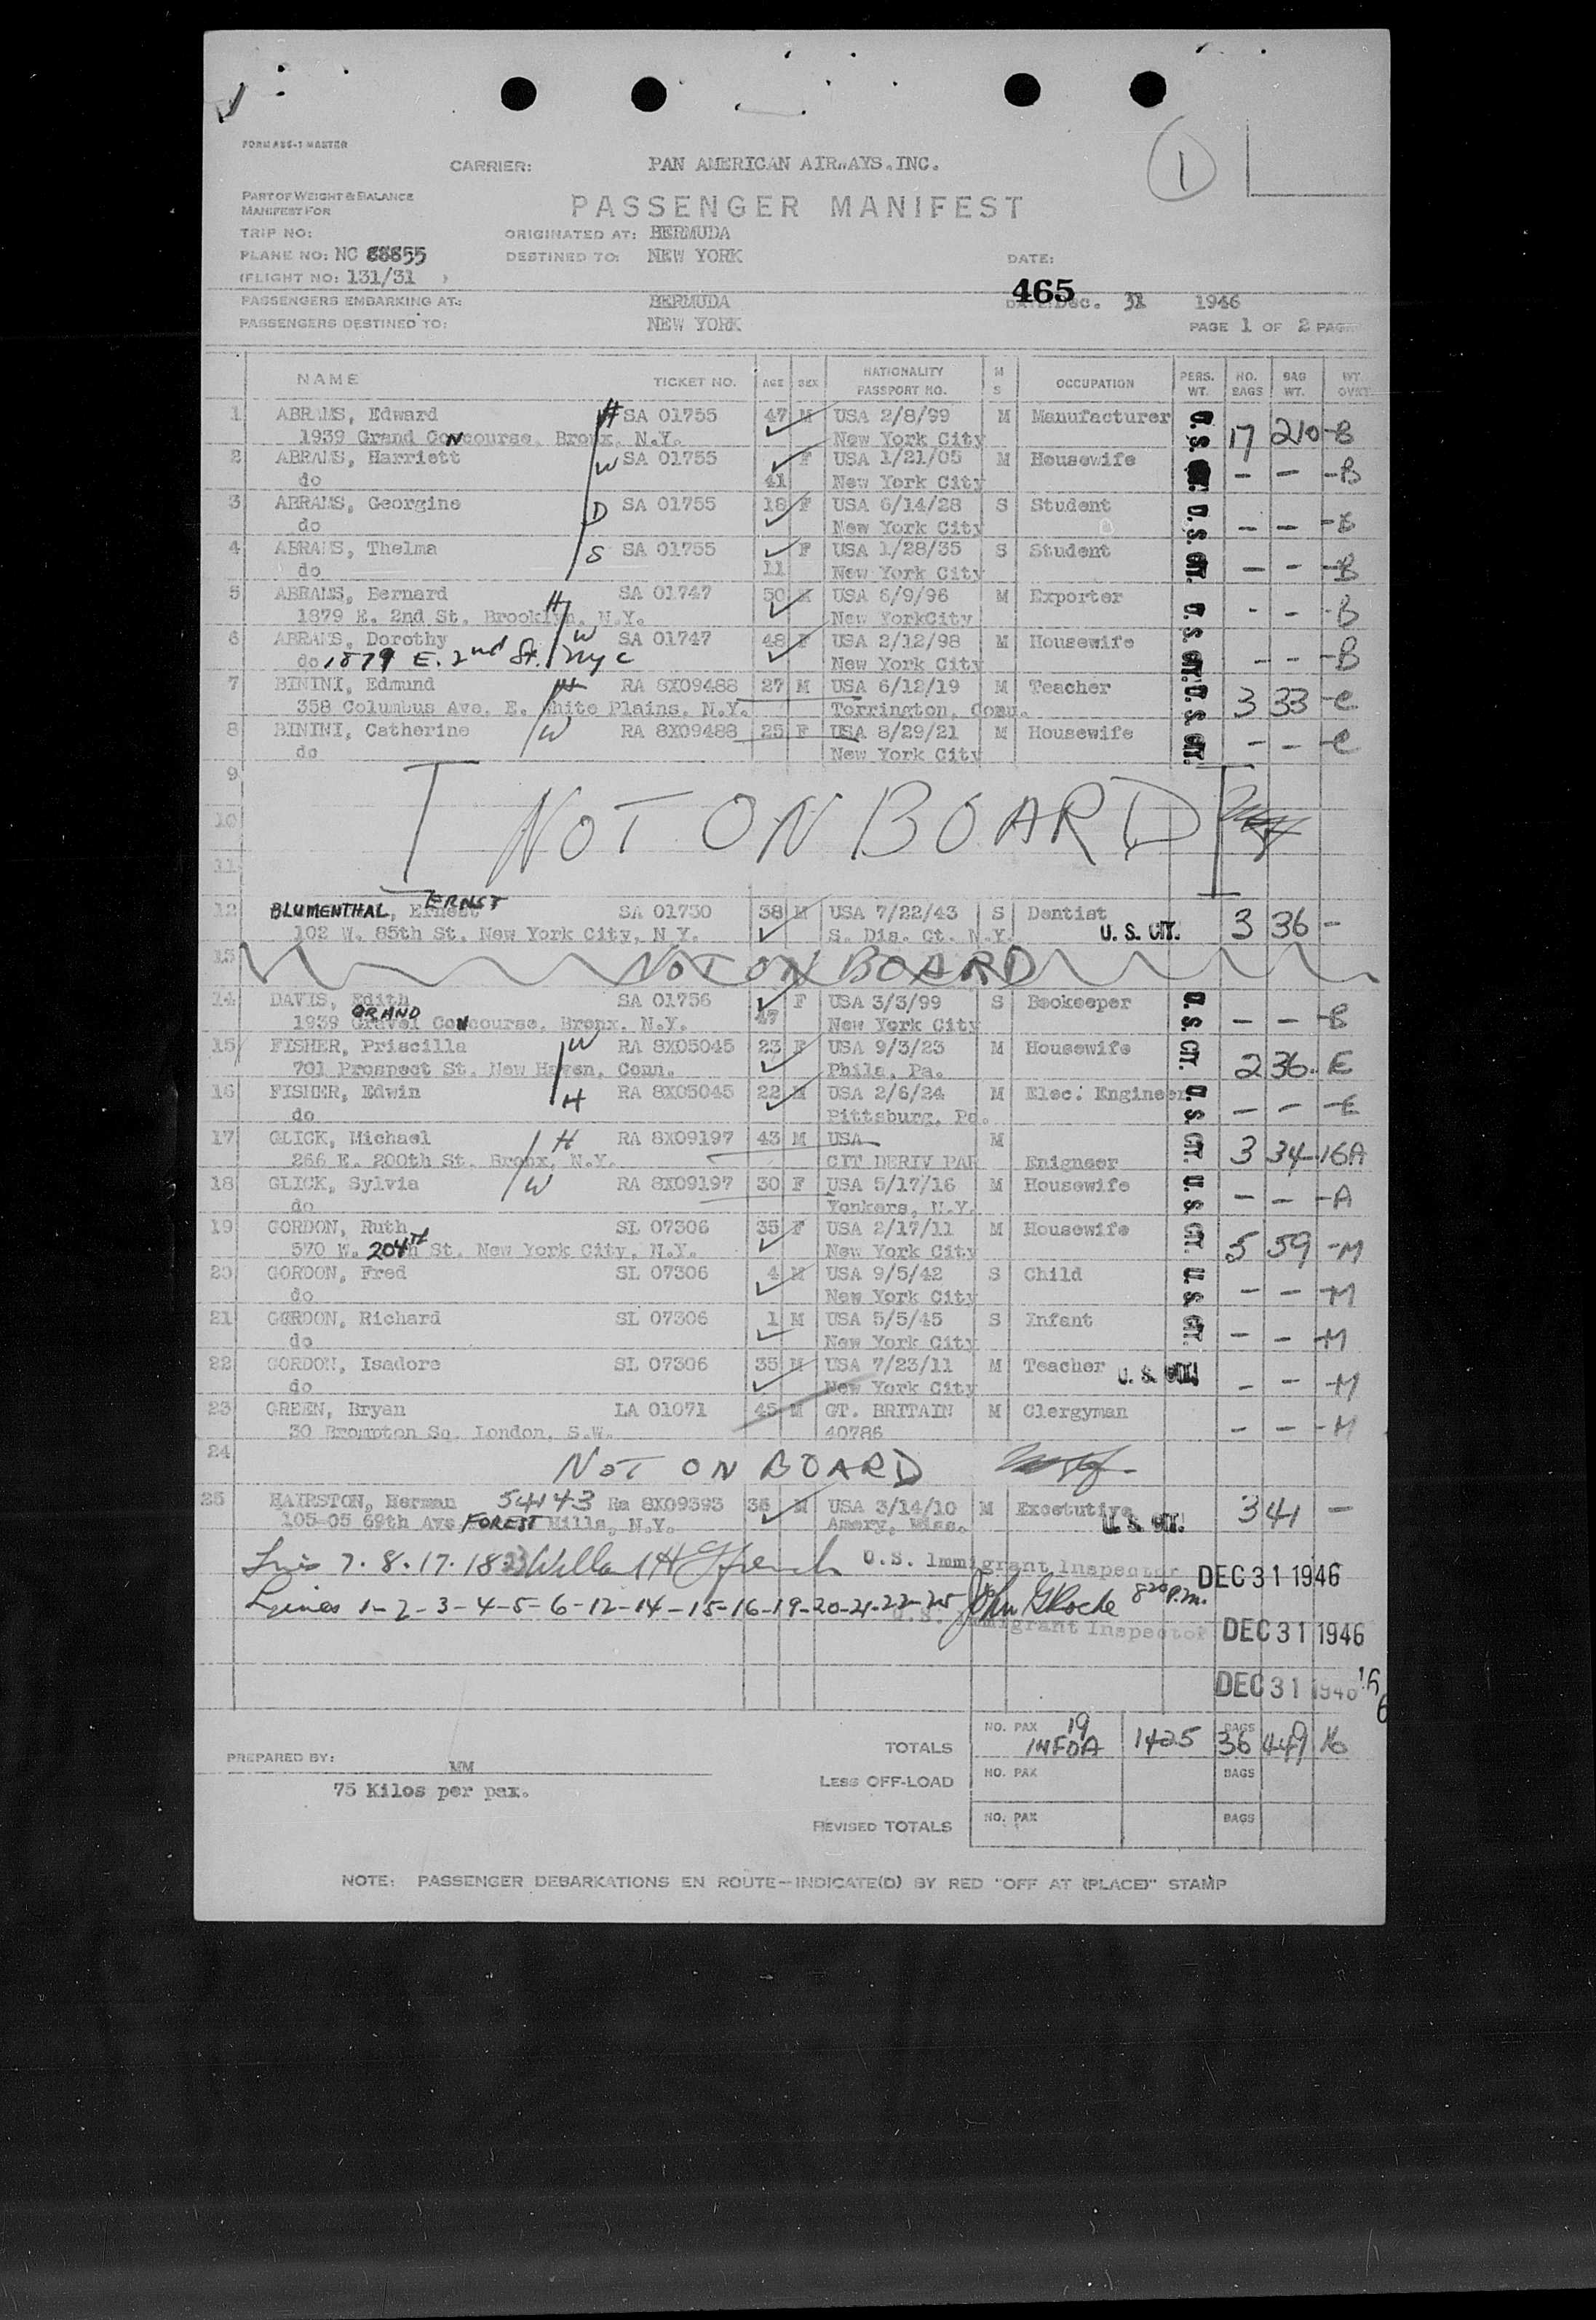 1
FORM ABS-1 MASTER
CARRIER: PAN AMERICAN AIRWAYS.INC.
PART OF WEIGHT & BALANCE
MANIFEST FOR
PASSENGER MANIFEST
TRIP NO: ORIGINATED AT: BERMUDA
PLANE NO: NC 88855 DESTINED TO: NEW YORK DATE:
(FLIGHT NO: 131/31 )
465
PASSENGERS EMBARKING AT: BERMUDA DATE: Dec. 31 1946
PASSENGERS DESTINED TO: NEW YORK PAGE 1 OF 2 PAGES
NAME TICKET NO. AGE SEX NATIONALITY PASSPORT NO. M S OCCUPATION PERS. WT. NO. BAGS BAG WT. WT. OVRT
1 ABRAMS, Edward H SA 01755 47 M USA 2/8/99 M Manufacturer U. S. 17 210 -B
1939 Grand Concourse, Bronx, N.Y. New York City
2 ABRAMS, Harriett W SA 01755 F USA 1/21/05 M Housewife - - -B
do 41 New York City
3 ABRAMS, Georgine D SA 01755 18 F USA 6/14/28 S Student U. S. CIT. - - -B
do New York City
4 ABRAMS, Thelma S SA 01755 F USA 1/28/35 S Student - - -B
do 11 New York City
5 ABRAMS, Bernard H SA 01747 50 M USA 6/9/96 M Exporter U. S. CIT. - - -B
1879 E. 2nd St. Brooklyn, N.Y. New YorkCity
6 ABRAMS, Dorothy W SA 01747 48 F USA 2/12/98 M Housewife - - -B
do 1879 E. 2nd St. NYC New York City
7 BININI, Edmund H RA 8X09488 27 M USA 6/12/19 M Teacher U. S. CIT. 3 33 -C
358 Columbus Ave. E. White Plains, N.Y. Torrington, Conn.
8 BININI, Catherine W RA 8X09488 25 F USA 8/29/21 M Housewife - - -C
do New York City
9
10 NOT ON BOARD
11
12 BLUMENTHAL, Ernest ERNST SA 01730 38 M USA 7/22/43 S Dentist 3 36 -
102 W. 85th St. New York City, N Y. S. Dis. Ct. N.Y. U. S. CIT.
13 NOT ON BOARD
14 DAVIS, Edith SA 01756 F USA 3/3/99 S Bookeeper U. S. CIT. - - -B
1939 Gravel GRAND Concourse, Bronx, N.Y. 47 New York City
15 FISHER, Priscilla W RA 8X05045 23 F USA 9/3/23 M Housewife 2 36 E
701 Prospect St. New Haven, Conn. Phila. Pa.
16 FISHER, Edwin H RA 8X05045 22 M USA 2/6/24 M Elec. Engineer U. S. CIT. - - -E
do Pittsburg, Pa.
17 GLICK, Michael H RA 8X09197 43 M USA M 3 34 -16A
266 E. 200th St. Bronx, N.Y. CIT DERIV PAR Enigneer
18 GLICK, Sylvia W RA 8X09197 30 F USA 5/17/16 M Housewife U. S. CIT. - - -A
do Yonkers, N.Y.
19 GORDON, Ruth SL 07306 35 F USA 2/17/11 M Housewife 5 59 -M
570 W. 204th St. New York City, N.Y. New York City
20 GORDON, Fred SL 07306 4 M USA 9/5/42 S Child U. S. CIT. - - -M
do New York City
21 GORDON, Richard SL 07306 1 M USA 5/5/45 S Infant - - -M
do New York City
22 GORDON, Isadore SL 07306 35 M USA 7/23/11 M Teacher U. S. CIT. - - -M
do New York City
23 GREEN, Bryan LA 01071 45 M GT. BRITAIN M Clergyman - - -M
30 Brompton Sq. London, S.W. 40786
24 NOT ON BOARD
25 HAIRSTON, Herman 54143 Ra 8X09393 36 M USA 3/14/10 M Excetutive 3 41 -
105-05 69th Ave FOREST Hills, N.Y. Amory, Miss. U. S. CIT.
7. 8. 17. 18 23 Willard H French U.S. Immigrant Inspector DEC 31 1946
Lines 1-2-3-4-5-6-12-14-15-16-19-20-21-22-25 John G Roche 8 20 P.m.
U.S. Immigrant Inspector DEC 31 1946
DEC 31 1946
TOTALS NO. PAX 19 1425 BAGS 36 449 16
PREPARED BY: MM
LESS OFF-LOAD NO. PAX BAGS
75 Kilos per pax.
REVISED TOTALS NO. PAX BAGS
NOTE: PASSENGER DEBARKATIONS EN ROUTE—INDICATE(D) BY RED "OFF AT (PLACE)" STAMP